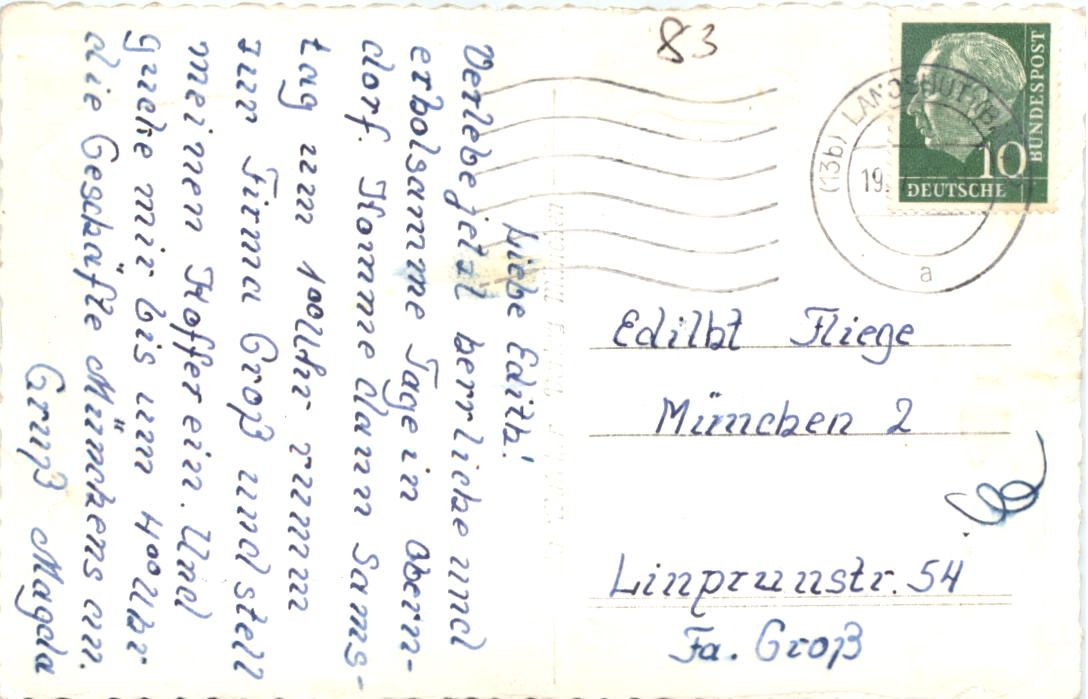 Liebe Edith!
Verlebe jetzt herrliche und
erholsamme Tage in Obern-
dorf. Komme dann Sams-
tag um 10⁰⁰Uhr rumm
zur Firma Groß und stell
meinem Koffer ein. Und
gucke mir bis um 4⁰⁰Uhr
die Geschäfte Münchens an.
Gruß Magda
83
(13b) LANDSHUT (B
19.
a
10
BUNDESPOST
DEUTSCHE
Edilbt Fliege
München 2
Linprunstr. 54
Fa. Groß